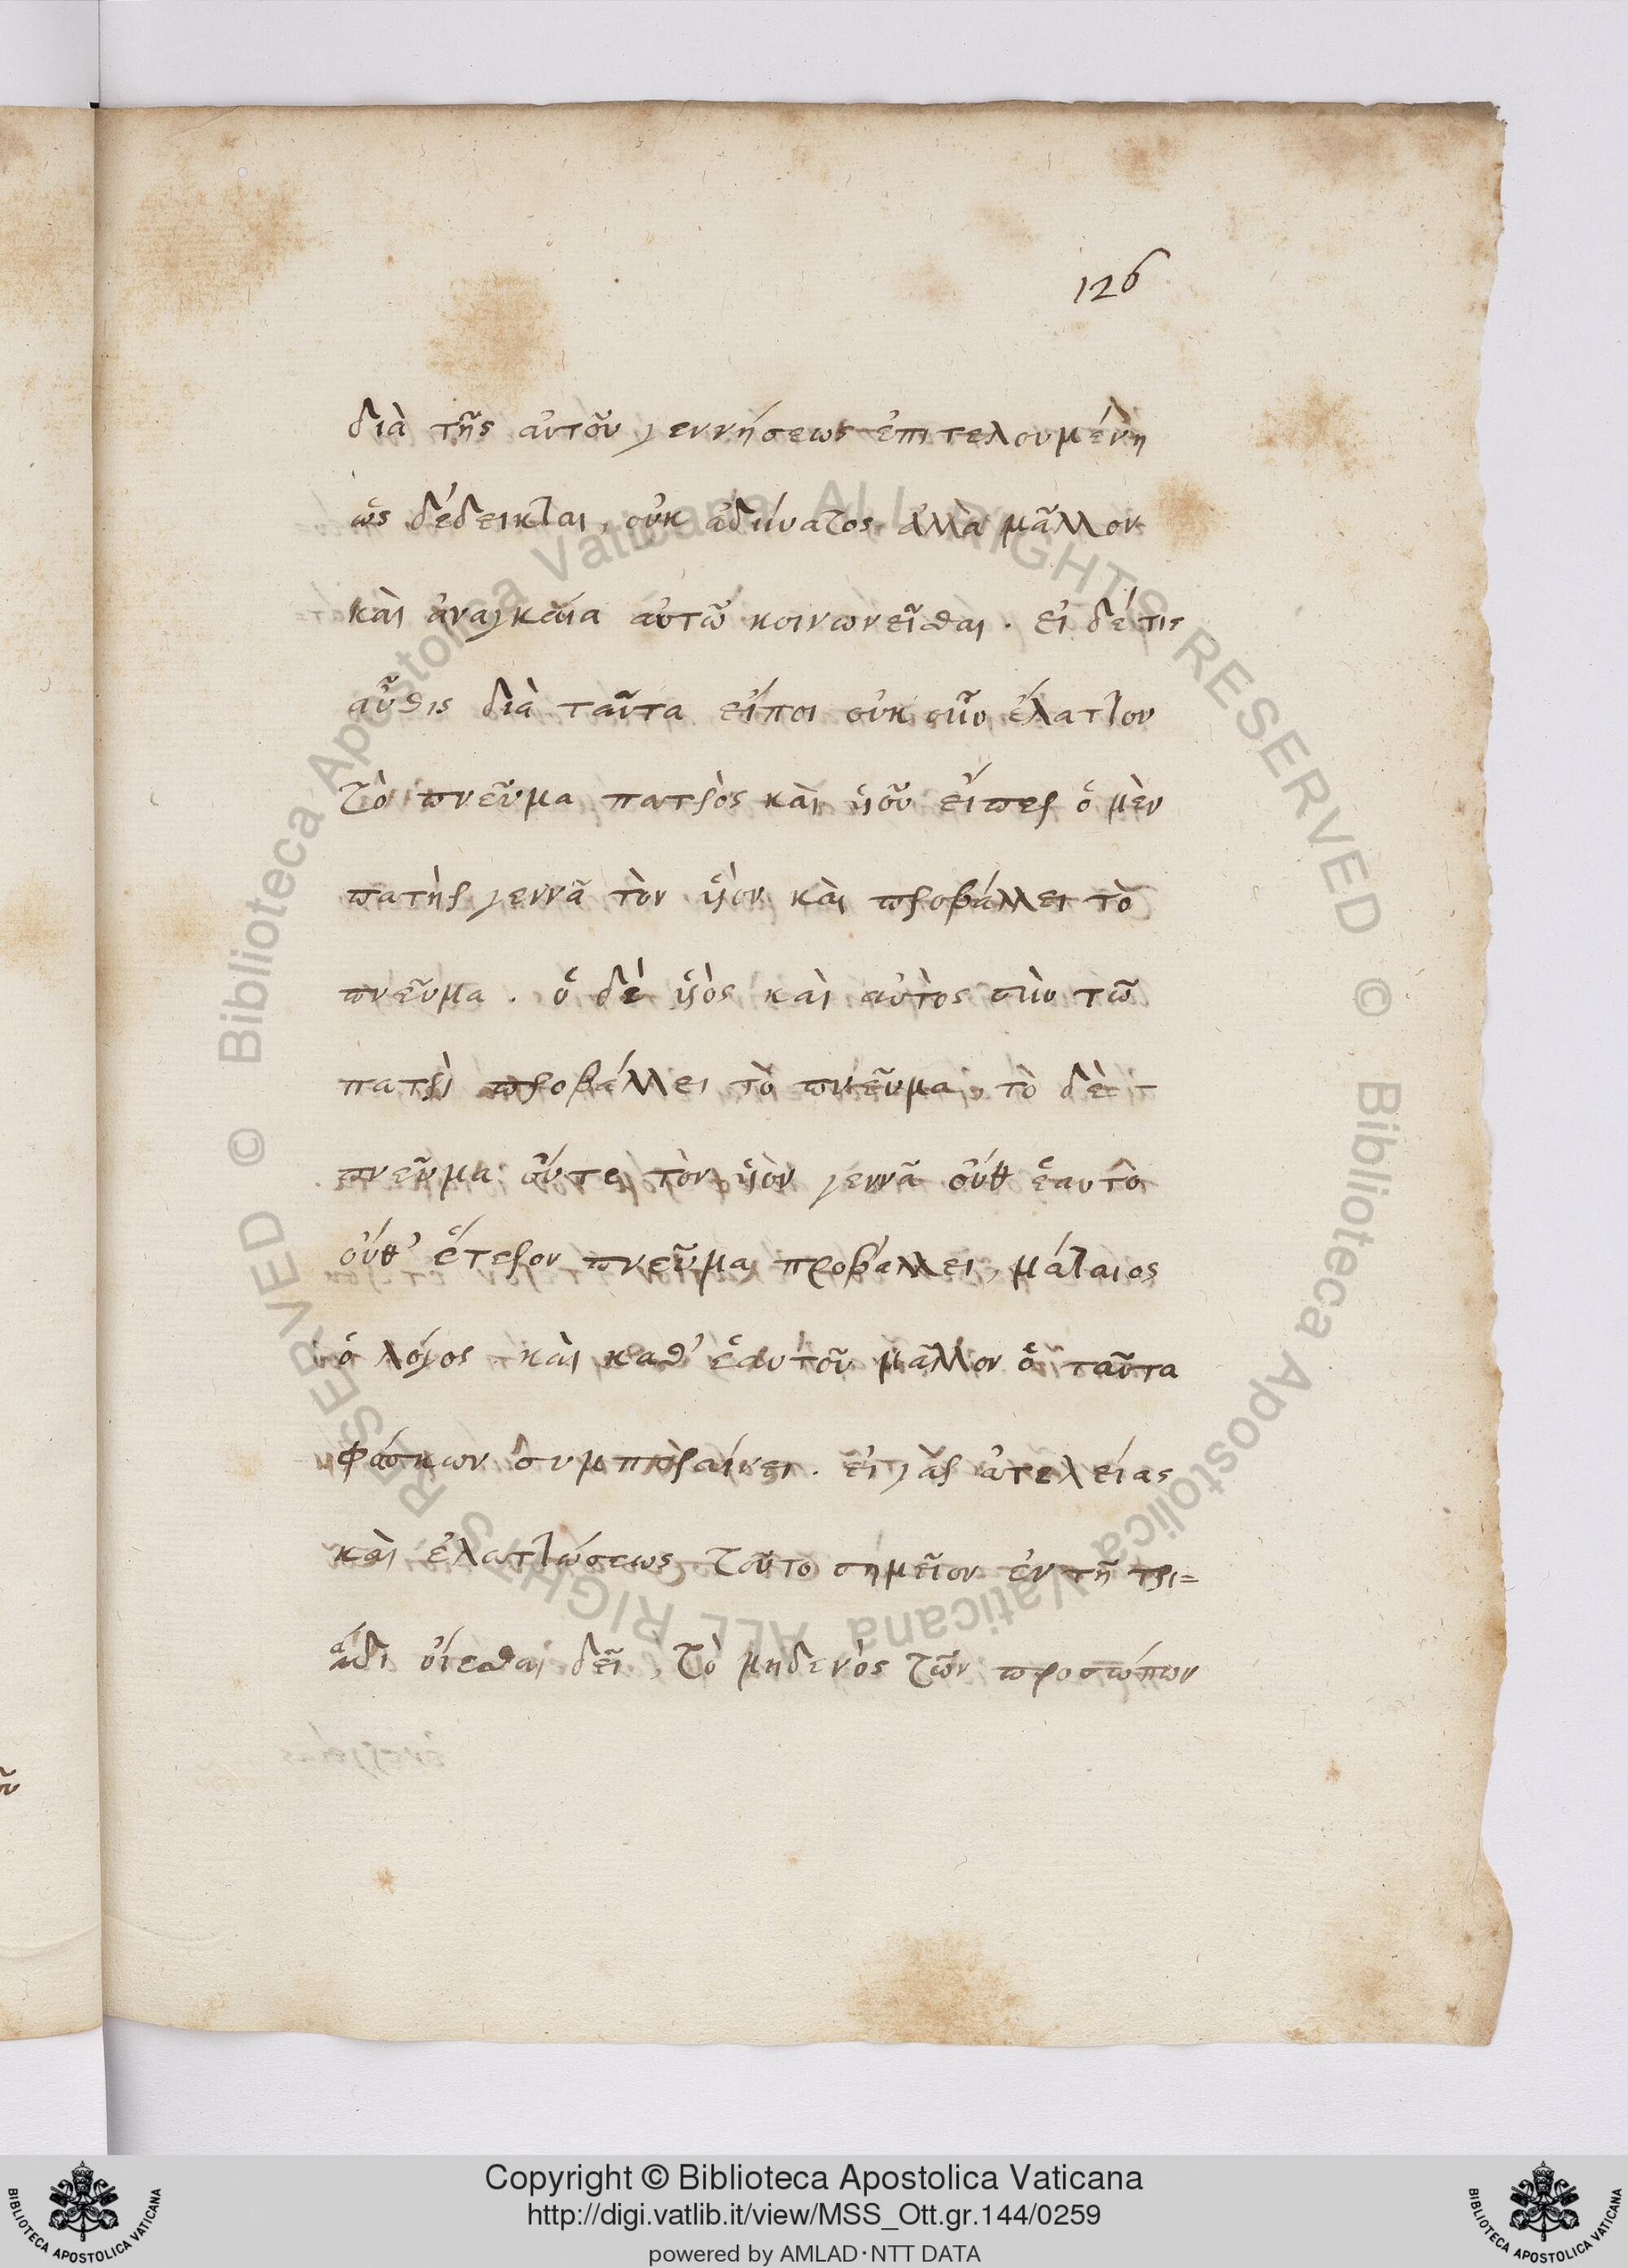 126
διὰ τῆς αὐτοῦ γεννήσεως ἐπιτελουμένη
ὡς δέδεικται, οὐκ ἀδύνατος ἀλλὰ μᾶλλον
καὶ ἀναγκαία αὐτῶ κοινωνεῖσθαι. εἰ δέ τις
αὖθις διὰ ταῦτα εἴποι οὐκ οὖν ἔλαττον
τὸ πνεῦμα πατρὸς καὶ ὑιοῦ εἴπερ ὁ μὲν
πατὴρ γεννᾶ τὸν ὑιὸν καὶ προβάλλει τὸ
πνεῦμα. ὁ δὲ ὑιὸς καὶ αὐτὸς σὺν τῶ
πατρὶ προβάλλει τὸ πνεῦμα, τὸ δὲ
πνεῦμα οὔτε τὸν ὑιὸν γεννᾶ οὔθ ἑαυτὸ
οὔθ' ἕτερον πνεῦμα προβάλλει, μάταιος
ὁ λόγος καὶ καθ' ἑαυτοῦ μᾶλλον ὁ ταῦτα
φάσκων συμπεραίνει. εἰ γὰρ ἀτελείας
καὶ ἐλαττώσεως τοῦτο σημεῖον ἐν τῆ τρι=
άδι οἴεσθαι δεῖ, τὸ μηδενὸς τῶν προσώπων
Copyright © Biblioteca Apostolica Vaticana
http://digi.vatlib.it/view/MSS_Ott.gr.144/0259
powered by AMLAD·NTT DATA
BIBLIOTECA APOSTOLICA VATICANA
BIBLIOTECA APOSTOLICA VATICANA
© Biblioteca Apostolica Vaticana ALL RIGHTS RESERVED
© Biblioteca Apostolica Vaticana ALL RIGHTS RESERVED